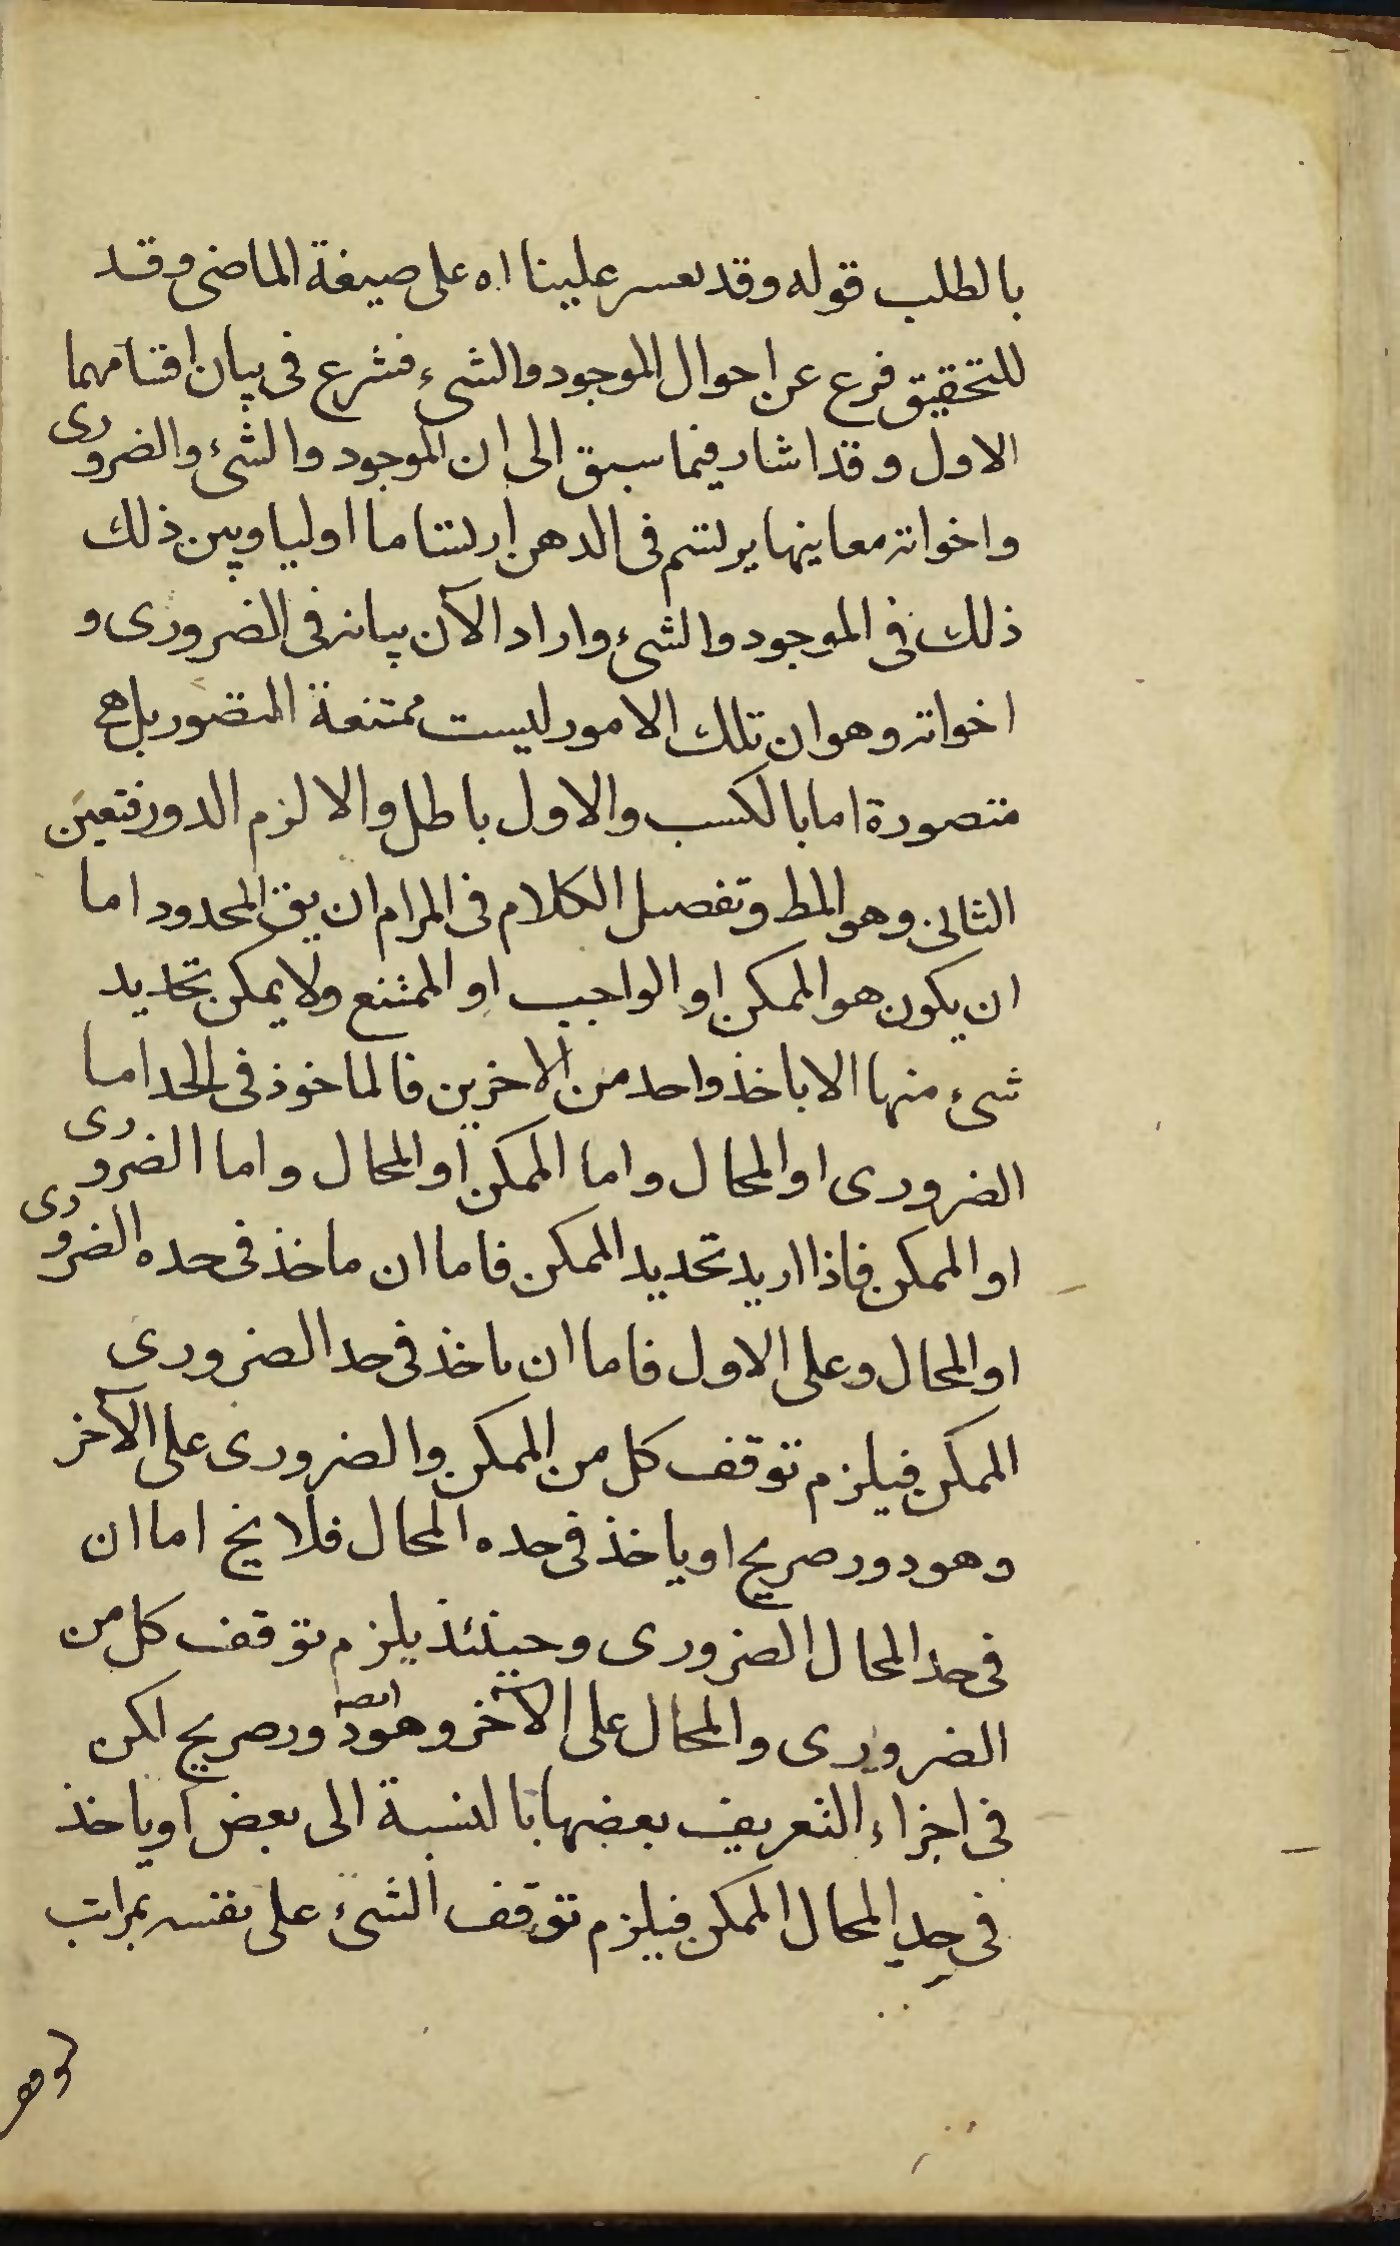 بالطلب قوله وقد يعسر علينا اه على صيغة الماضى وقد
للتحقيق فرع عن احوال الموجود والشىء فشرع فى بيان اقسامهما
الاول وقد اشار فيما سبق الى ان الموجود والشىء والضرورى
واخواته معاينها يرتسم فى الدهن ارتساما اوليا وبين ذلك
ذلك فى الموجود والشىء واراد الآن بيانه فى الضرورى و
اخواته وهو ان تلك الامور ليست ممتنعة التصور بل هى
متصورة اما بالكسب والاول باطل والا لزم الدور فتعين
الثانى وهو المط وتفصيل الكلام فى المرام ان يق المحدود اما
ان يكون هو الممكن او الواجب او الممتنع ولا يمكن تحديد
شىء منها الا باخذ واحد من الاخرين فالماخوذ فى الحد اما
الضرورى او المحال واما الممكن او المحال واما الضرورى
او الممكن فاذا اريد تحديد الممكن فاما ان ياخذ فى حده الضرورى
او المحال وعلى الاول فاما ان ياخذ فى حد الضرورى
الممكن فيلزم توقف كل من الممكن والضرورى على الآخر
وهو دور صريح او ياخذ فى حده المحال فلا يخ اما ان
فى حد المحال الضرورى وحينئذ يلزم توقف كل من
الضرورى والمحال على الآخر وهو ايضا دور صريح لكن
فى اجزاء التعريف بعضها بالنسبة الى بعض او ياخذ
فى حد المحال الممكن فيلزم توقف الشىء على نفسه بمراتب